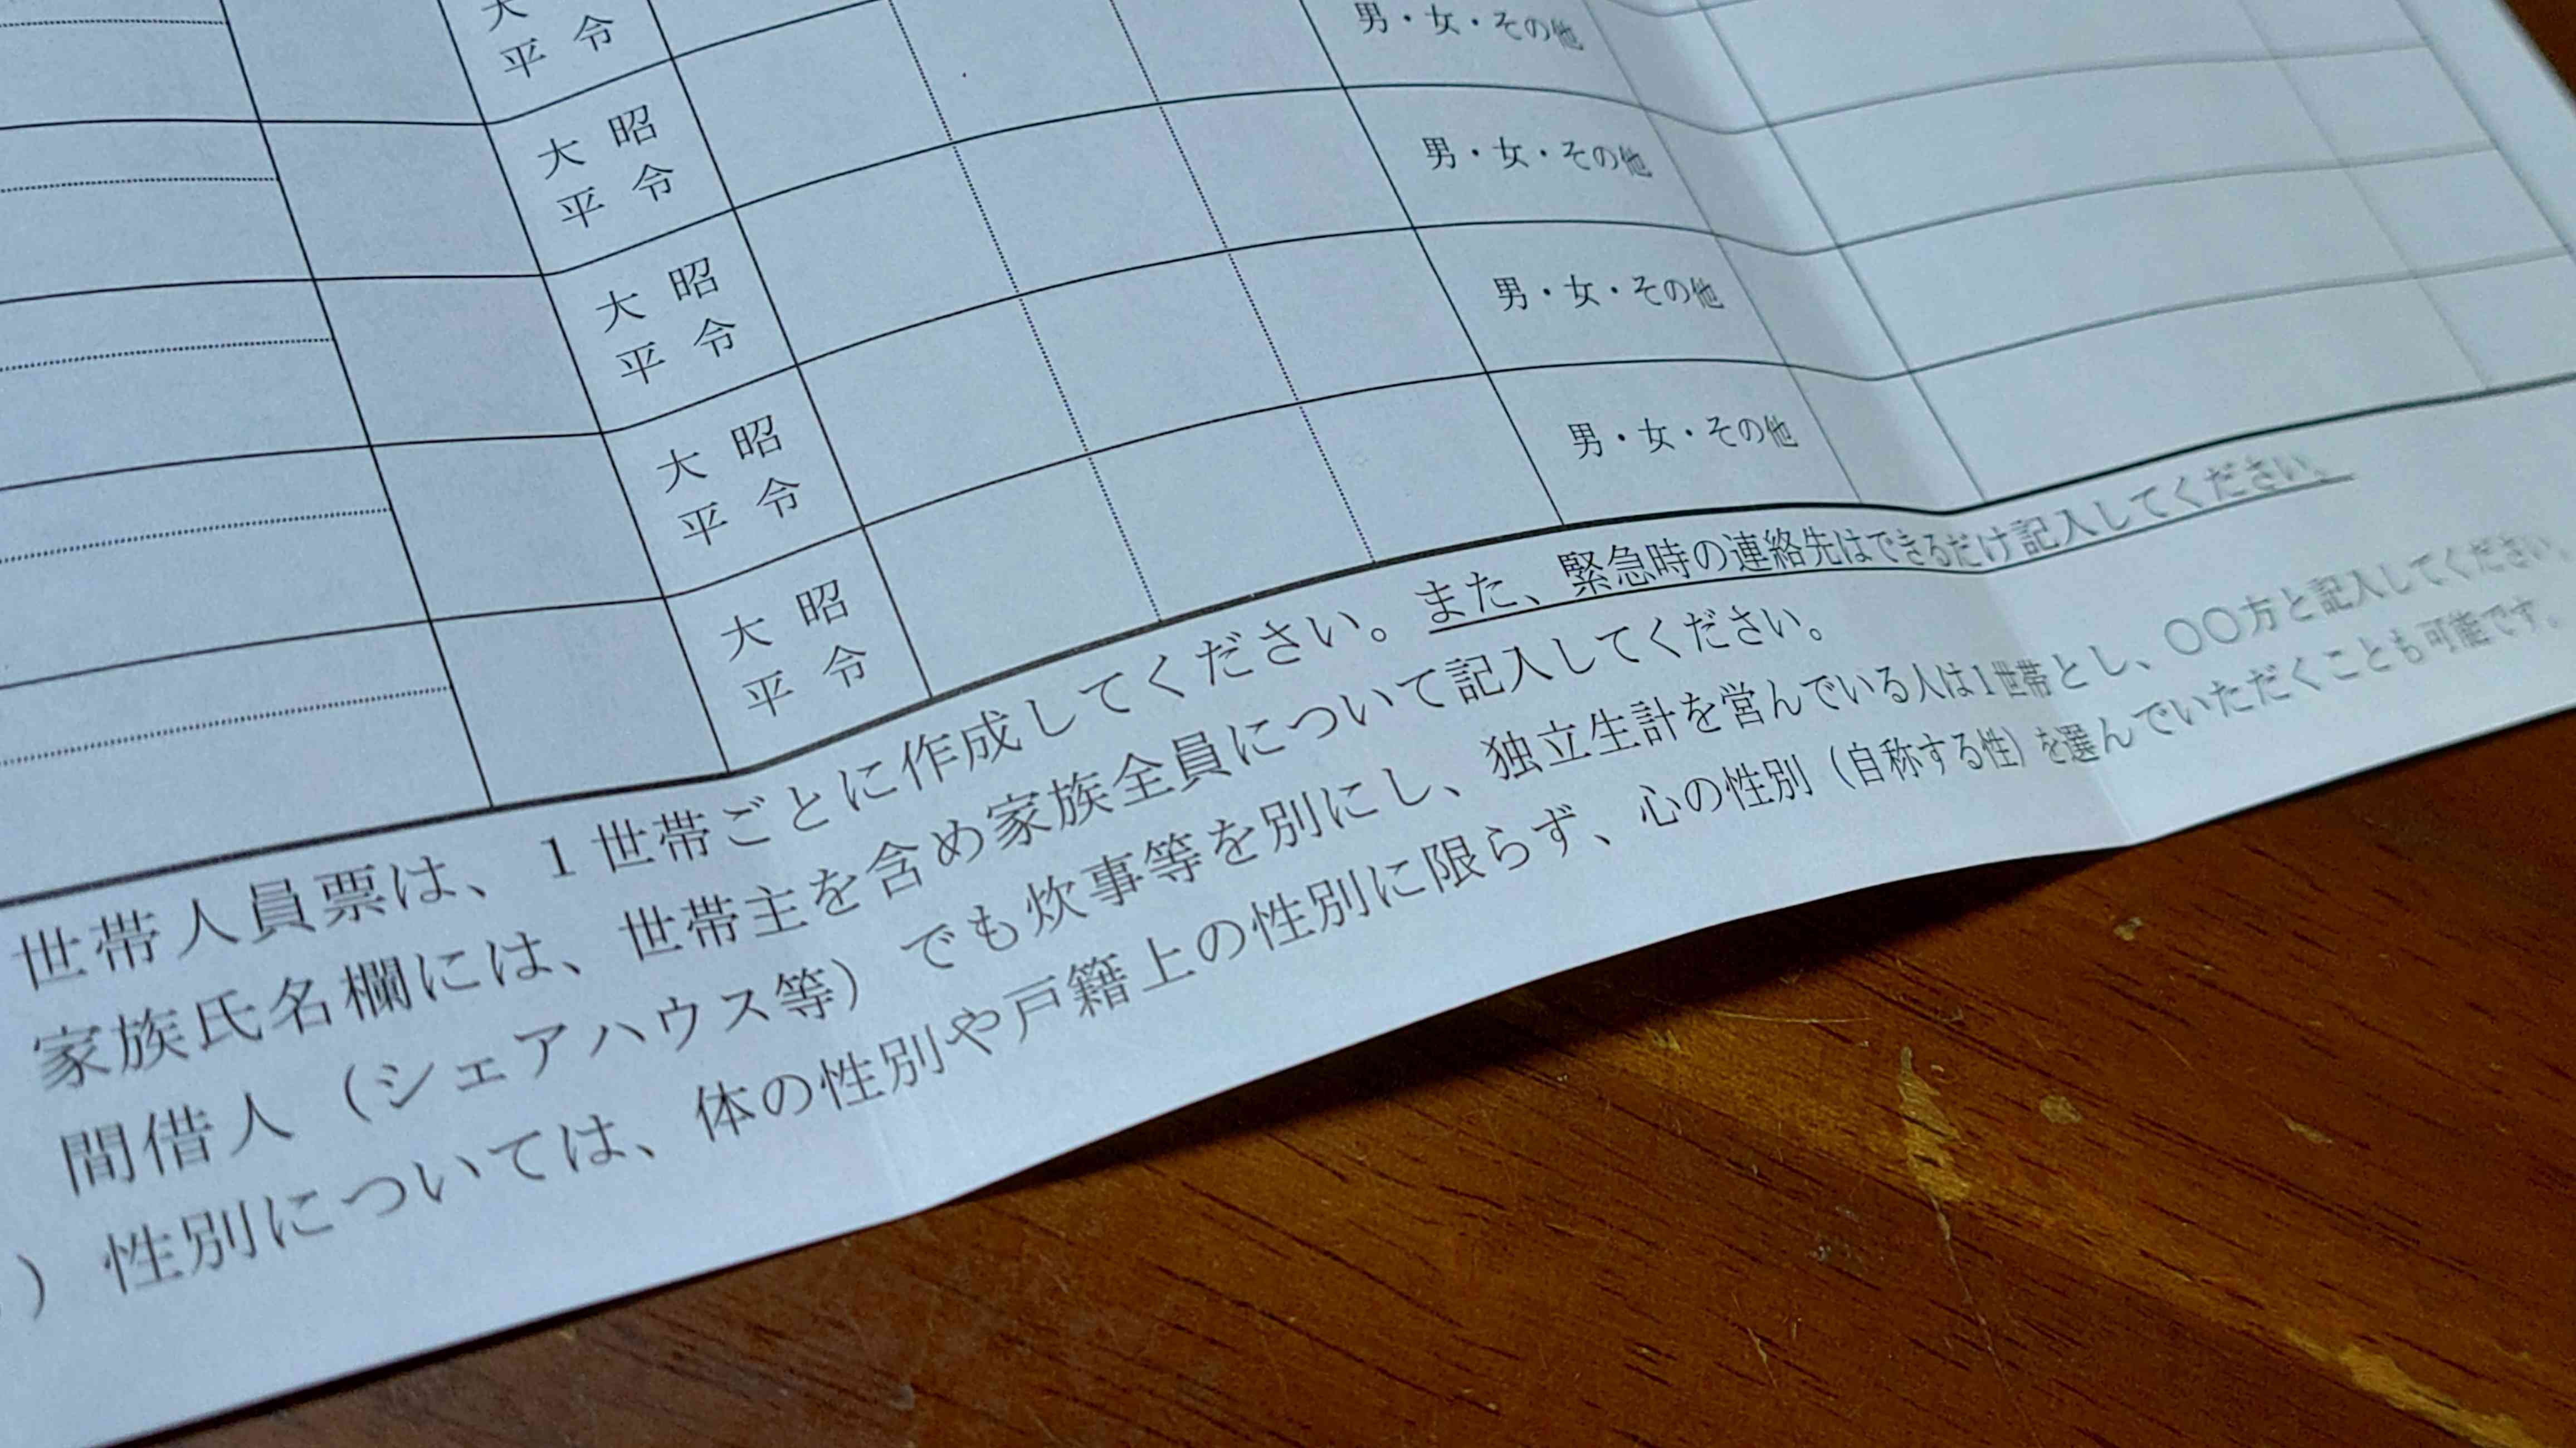 大
平 令
男・女・その他
大 昭
平 令
男・女・その他
大 昭
平 令
男・女・その他
大 昭
平 令
男・女・その他
大 昭
平 令
世帯人員票は、1世帯ごとに作成してください。また、緊急時の連絡先はできるだけ記入してください。
家族氏名欄には、世帯主を含め家族全員について記入してください。
間借人（シェアハウス等）でも炊事等を別にし、独立生計を営んでいる人は1世帯とし、〇〇方と記入してください。
）性別については、体の性別や戸籍上の性別に限らず、心の性別（自称する性）を選んでいただくことも可能です。